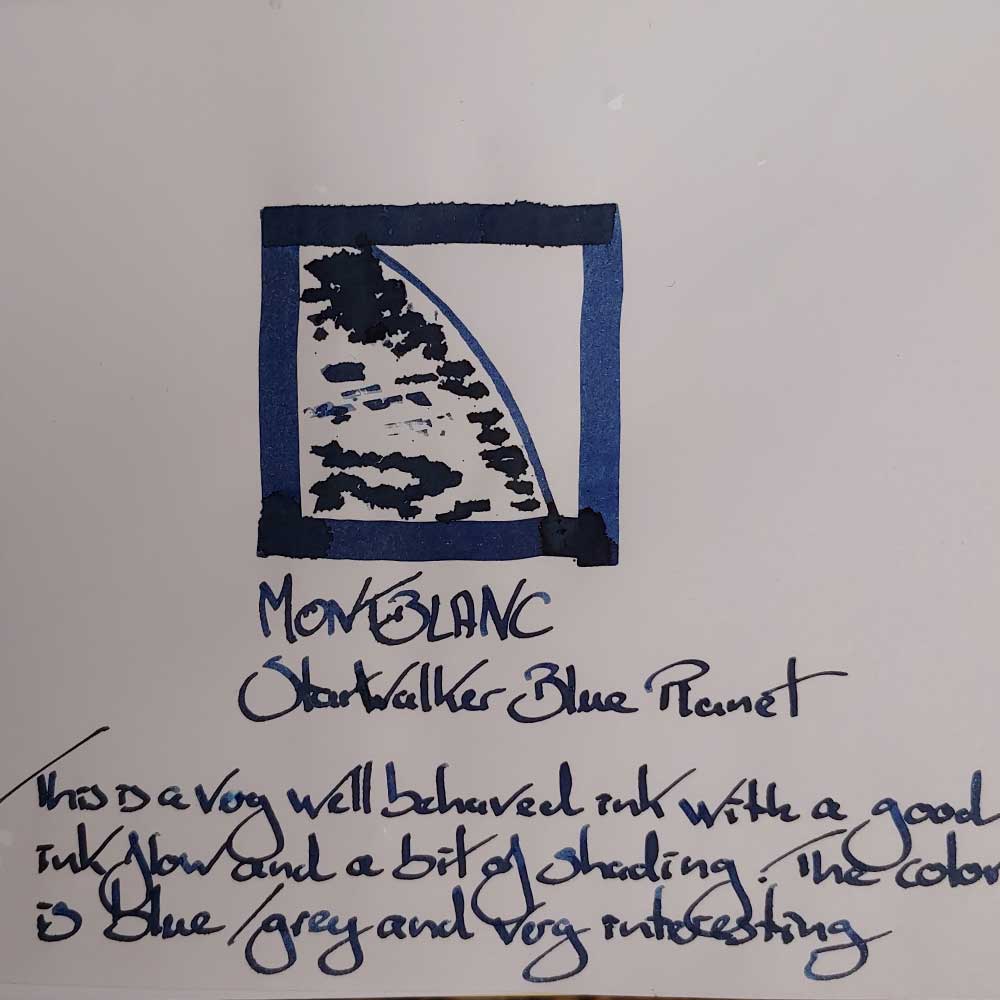 MONTBLANC
StarWalker Blue Planet
This is a very well behaved ink with a good
ink flow and a bit of shading. The color
is Blue/grey and very interesting